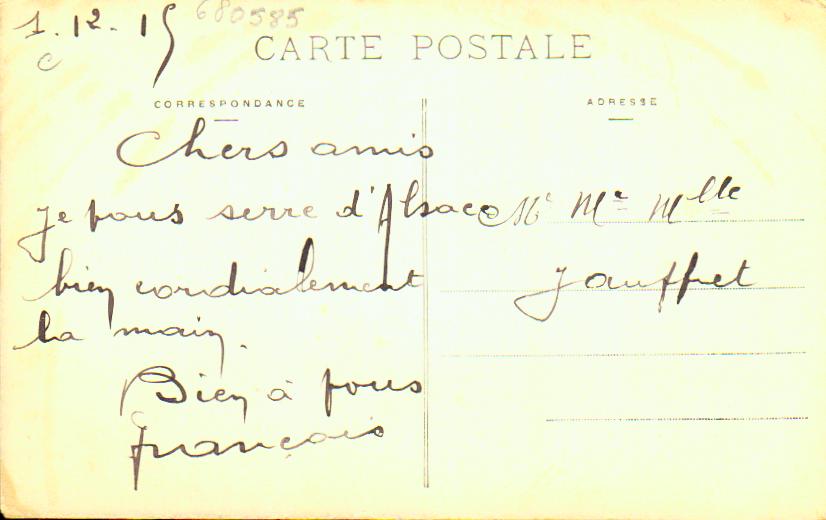 1.12.15
680585
c
CARTE POSTALE
CORRESPONDANCE
ADRESSE
Chers amis
je vous serre d'Alsace
bien cordialement
la main.
Bien à vous
François
Mr Mme Mlle
Jauffret